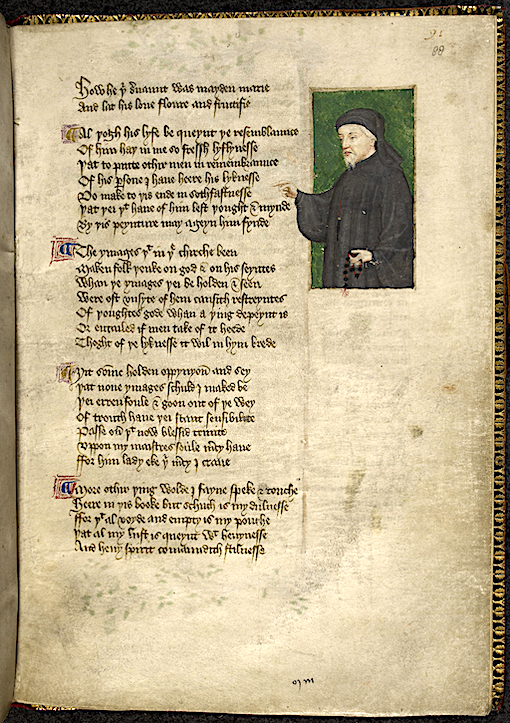 91
88
How he yͬ ẜuaunt was mayden marie
And lat his loue floure and fructifie
Al yogh his lyfe be queynt ye resemblaunce
Of him hay in me so fressh lyflynesse
Yat to putte othir men in remembraunce
Of his ꝑsone I haue heere his lyknesse
Do make to yis ende in sothfastnesse
Yat yei yͭ haue of him left yought & mynde
By yis peynture may ageyn him fynde
The ymages yͭ in yͤ chirche been
Maken folk yenke on god & on his seyntes
Whan ye ymages yei be holden & seen
Were oft unsyte of hem causith restreyntes
Of youghtes gode whan a ying depeynt is
Or entailed if men take of it heede
Thoght of ye lyknesse it wil in hym brede
Yit somme holden oppynyoun and sey
Yat none ymages schuld I maked be
Yei erren foule & goon out of ye wey
Of trouth haue yei scant sensibilite
Passe ou yͭ now blessid trinite
Uppon my maistres soule mͨy haue
ffor him lady eke yͥ mͨy I craue
More othir ying wolde I fayne speke & touche
Heere in yis booke but schuch is my dulnesse
ffor yͭ al voyde and empty is my pouche
Yat al my lust is queynt wͭ heuynesse
And heuy spirit comaundith stilnesse